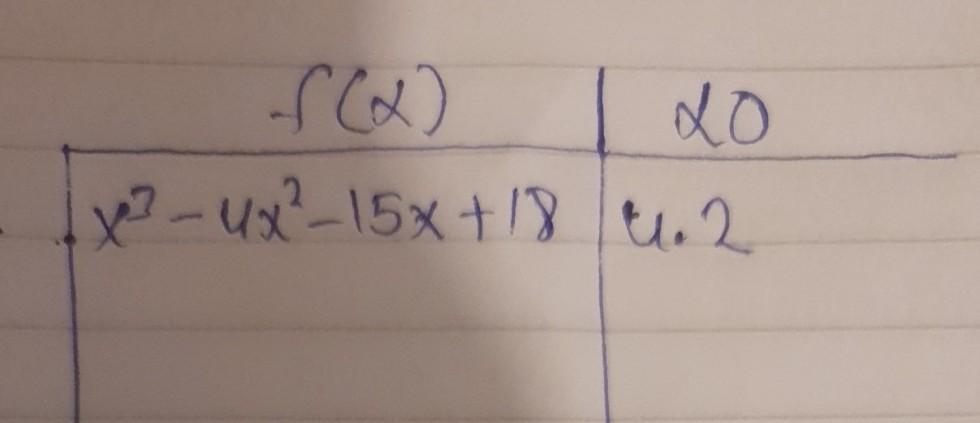 f(x) x0
x³-4x²-15x+18 4.2